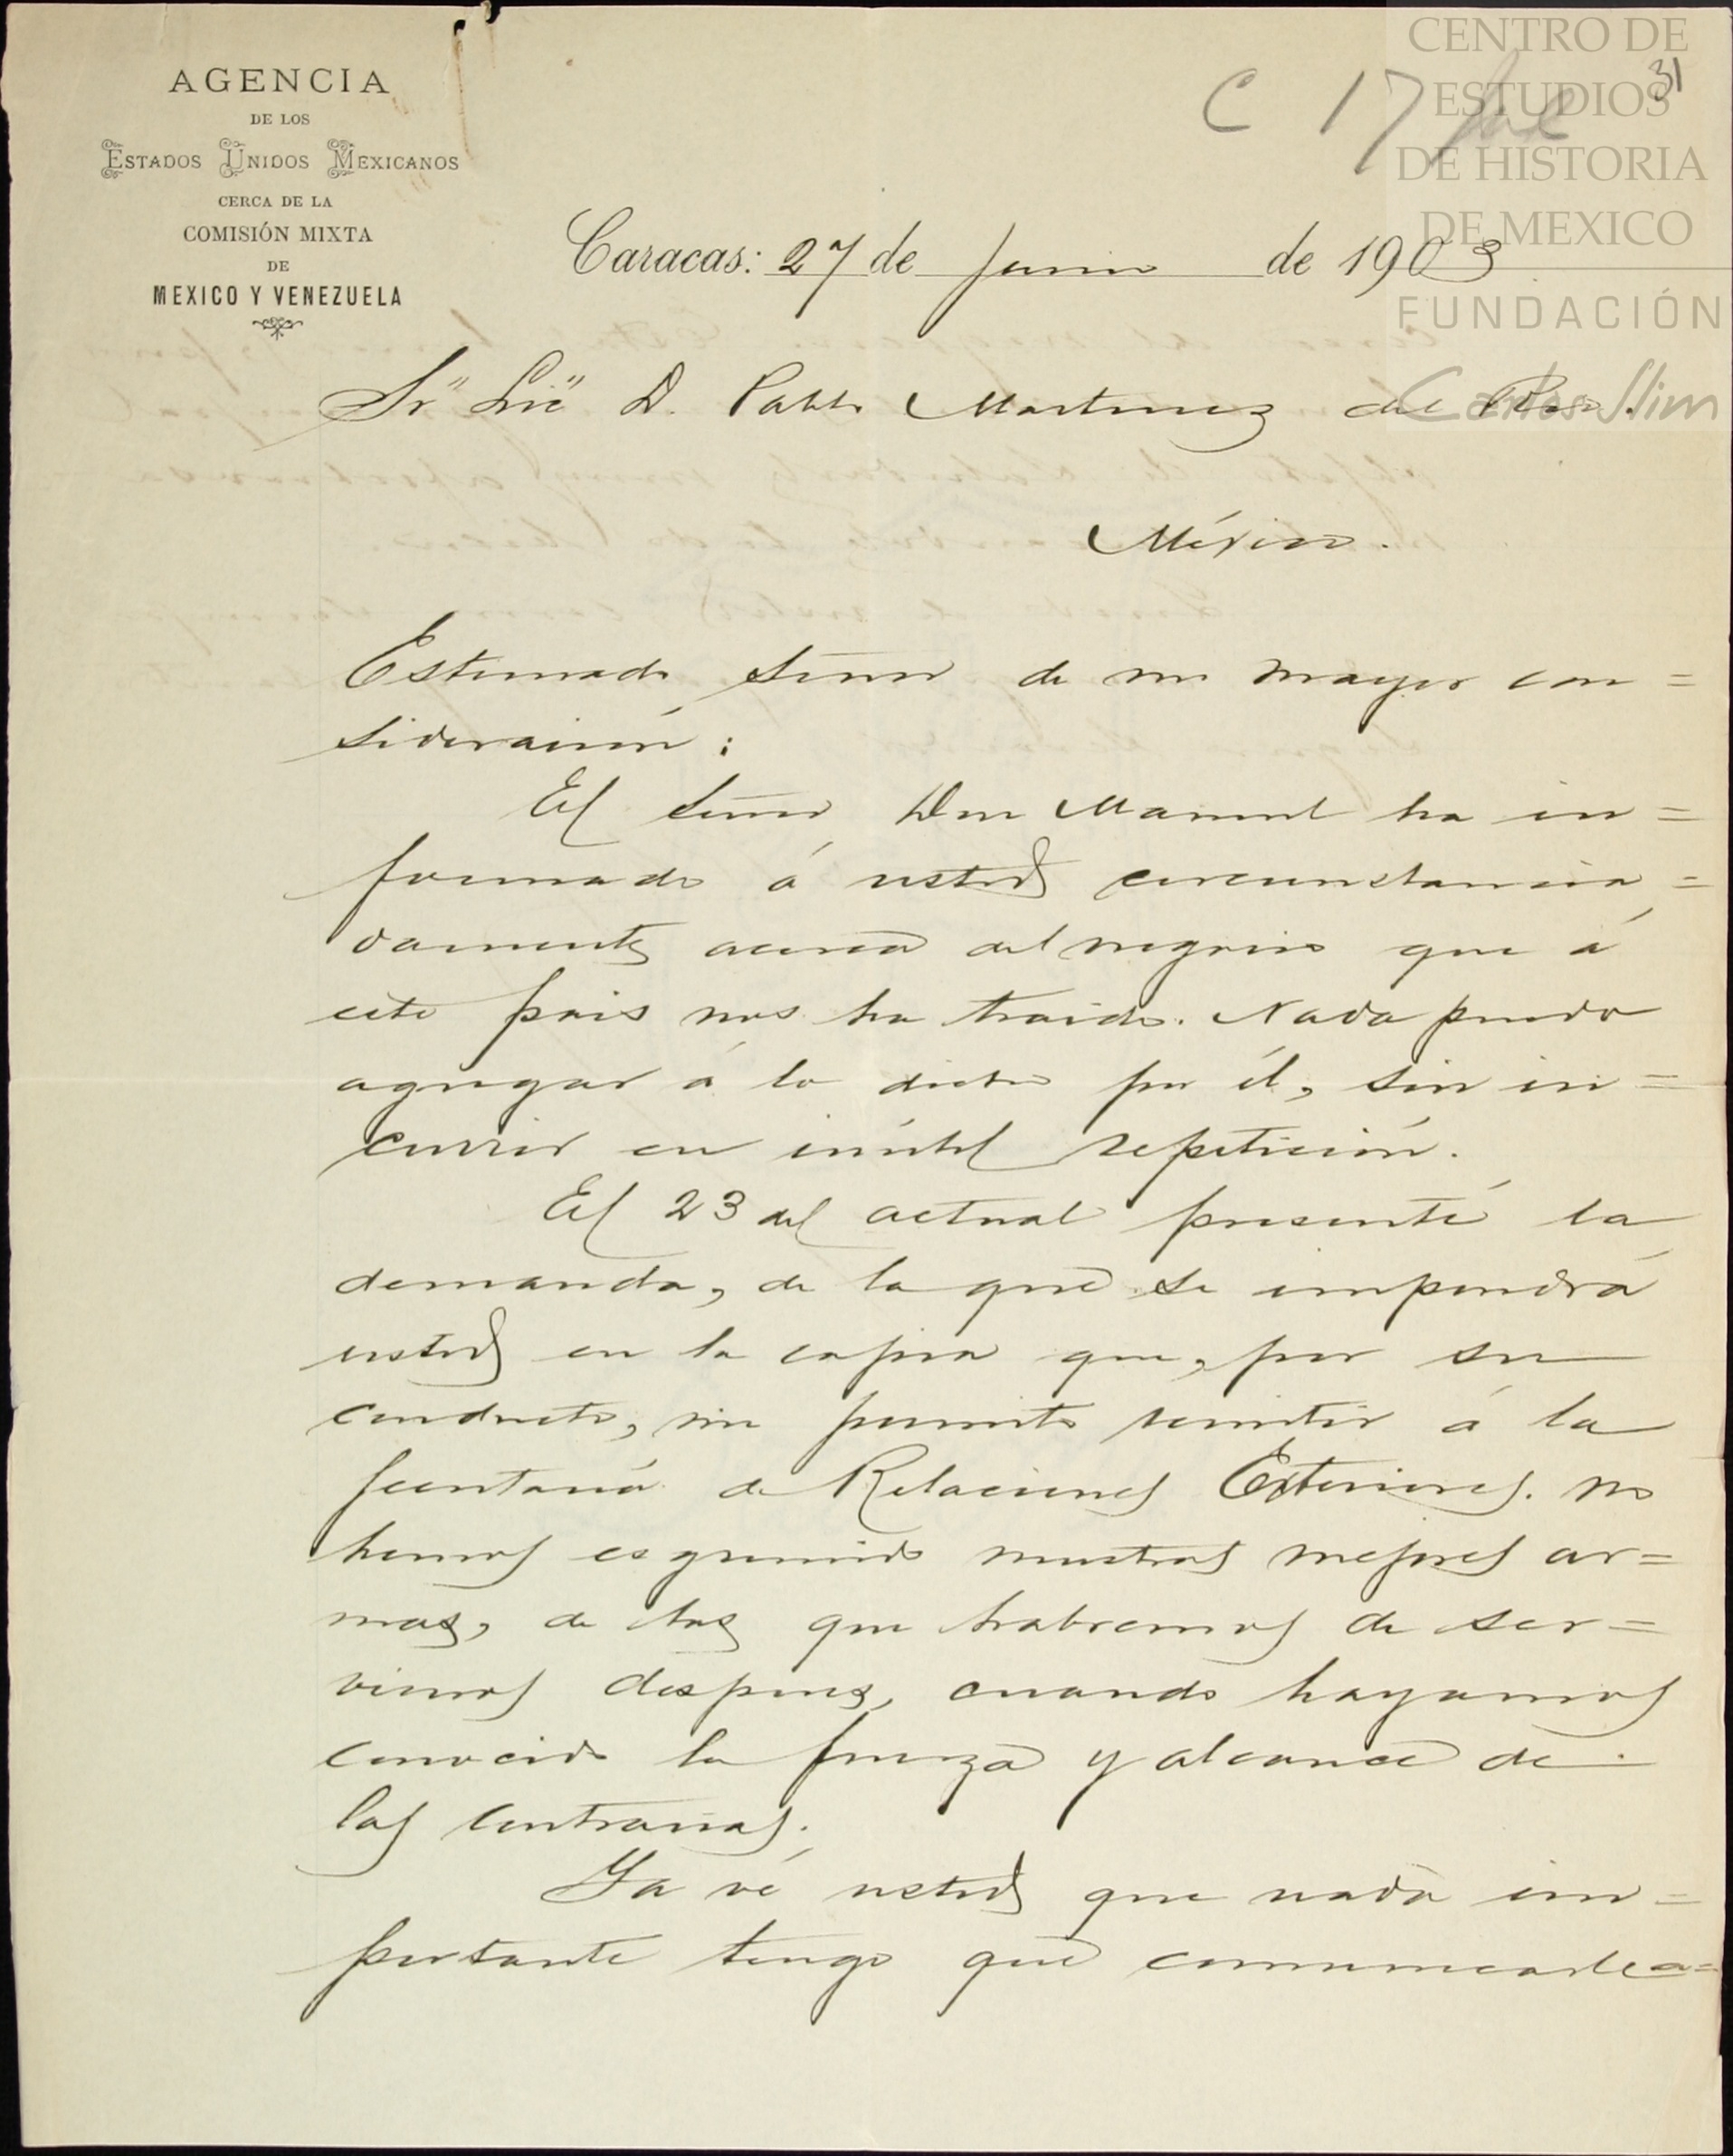 AGENCIA
DE LOS
ESTADOS UNIDOS MEXICANOS
CERCA DE LA
COMISIÓN MIXTA
DE
MEXICO Y VENEZUELA
CENTRO DE
ESTUDIOS
DE HISTORIA
DE MEXICO
FUNDACIÓN
Carlos Slim
31
C 17 Jul
Caracas: 27 de Junio de 1903
Sr. Lic. D. Pablo Martinez del Rio.
México.
Estimado señor de mi mayor con=
sideración:
El señor Don Manuel ha in=
formado á usted circunstancia=
damente acerca del negocio que á
este pais nos ha traido. Nada puedo
agregar á lo dicho por él, sin in=
currir en inútil repetición.
El 23 del actual presenté la
demanda, de la que se impondrá
usted en la copia que, por su
conducto, me permito remitir á la
Secretaría de Relaciones Exteriores. No
hemos esgrimido nuestras mejores ar=
mas, de las que habremos de ser=
virnos despues, cuando hayamos
conocido la fuerza y alcance de
las contrarias.
Ya vé usted que nada im=
portante tengo que comunicarle a=